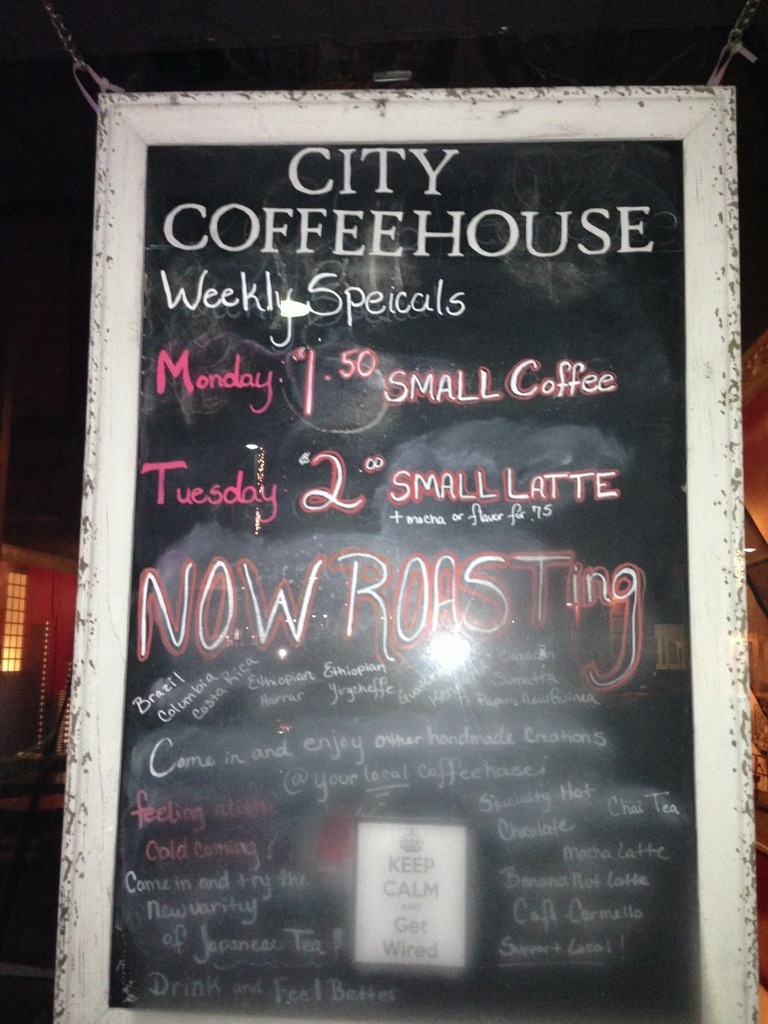 CITY
COFFEEHOUSE
Weekly Speicals
Monday $1.50 SMALL Coffee
Tuesday $2.00 SMALL LATTE
+ mocha or flavor for .75
NOW ROASTing
Brazil
Columbia
Costa Rica
Ethiopian
Harrar
Ethiopian
Yirgcheffe
Sumatra
Papua New Guinea
Come in and enjoy other handmade Creations
@ your local coffeehouse!
feeling a little
Cold coming?
Come in and try the
New varitey
of Japanese Tea!
Drink and Feel Better
KEEP
CALM
AND
Get
Wired
Specialty Hot
Chocolate
Chai Tea
Mocha Latte
Banana Nut Latte
Café Carmello
Support Local!